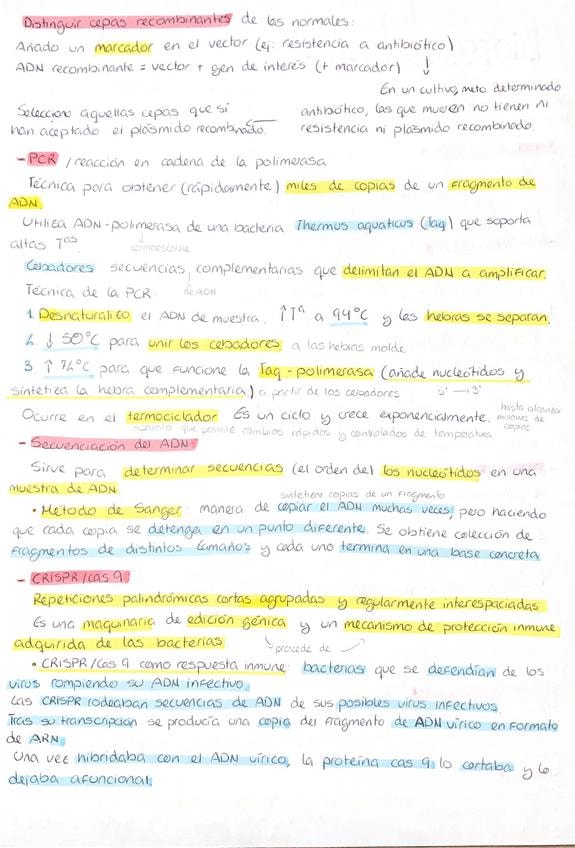 Distinguir cepas recombinantes de las normales:
Añado un marcador en el vector (ej: resistencia a antibiótico)
ADN recombinante = vector + gen de interés (+ marcador) ↓
En un cultivo, meto determinado
Selecciono aquellas cepas que sí antibiótico, las que mueren no tienen ni
han aceptado el plásmido recombinado. resistencia ni plásmido recombinado.
- PCR / reacción en cadena de la polimerasa
Técnica para obtener (rápidamente) miles de copias de un fragmento de
ADN
Utiliza ADN-polimerasa de una bacteria Thermus aquaticus (Taq) que soporta
altas Tᵃˢ
Cebadores secuencias complementarias que delimitan el ADN a amplificar.
de ADN
Técnica de la PCR:
1. Desnaturalizo el ADN de muestra. ↑Tª a 94°C y las hebras se separan.
2. ↓ 50°C para unir los cebadores a las hebras molde
3 ↑ 72°C para que funcione la Taq-polimerasa (añade nucleótidos y
sintetiza la hebra complementaria) a partir de los cebadores 5' → 3'
Ocurre en el termociclador Es un ciclo y crece exponencialmente. hasta alcanzar
millones de
copias
aparato que permite cambios rápidos y controlados de temperatura
- Secuenciación del ADN
Sirve para determinar secuencias (el orden de) los nucleótidos en una
muestra de ADN.
sintetizar copias de un fragmento
• Método de Sanger: manera de copiar el ADN muchas veces, pero haciendo
que cada copia se detenga en un punto diferente. Se obtiene colección de
fragmentos de distintos tamaños y cada uno termina en una base concreta
- CRISPR/cas 9
Repeticiones palindrómicas cortas agrupadas y regularmente interespaciadas
Es una maquinaria de edición génica y un mecanismo de protección inmune
adquirida de las bacterias. procede de
• CRISPR/Cas 9 como respuesta inmune: bacterias que se defendían de los
virus rompiendo su ADN infectivo.
Las CRISPR rodeaban secuencias de ADN de sus posibles virus infectivos.
Tras su transcripción se producía una copia del fragmento de ADN vírico en formato
de ARN.
Una vez hibridaba con el ADN vírico, la proteína cas 9 lo cortaba y lo
dejaba afuncional.